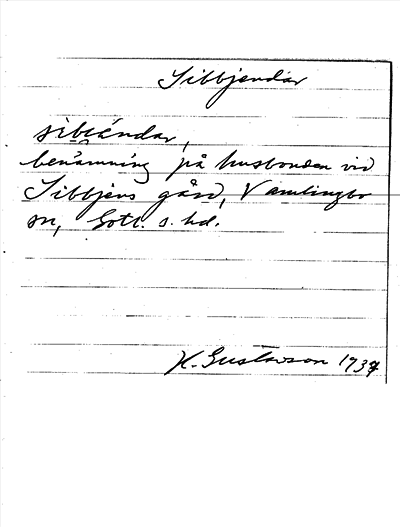 Sibbjendar
sibiändar,
benämning på husbonden vid
Sibbjens gård, Vamlingbo
sn, Gotl. s. hd.
H. Gustavson 1937